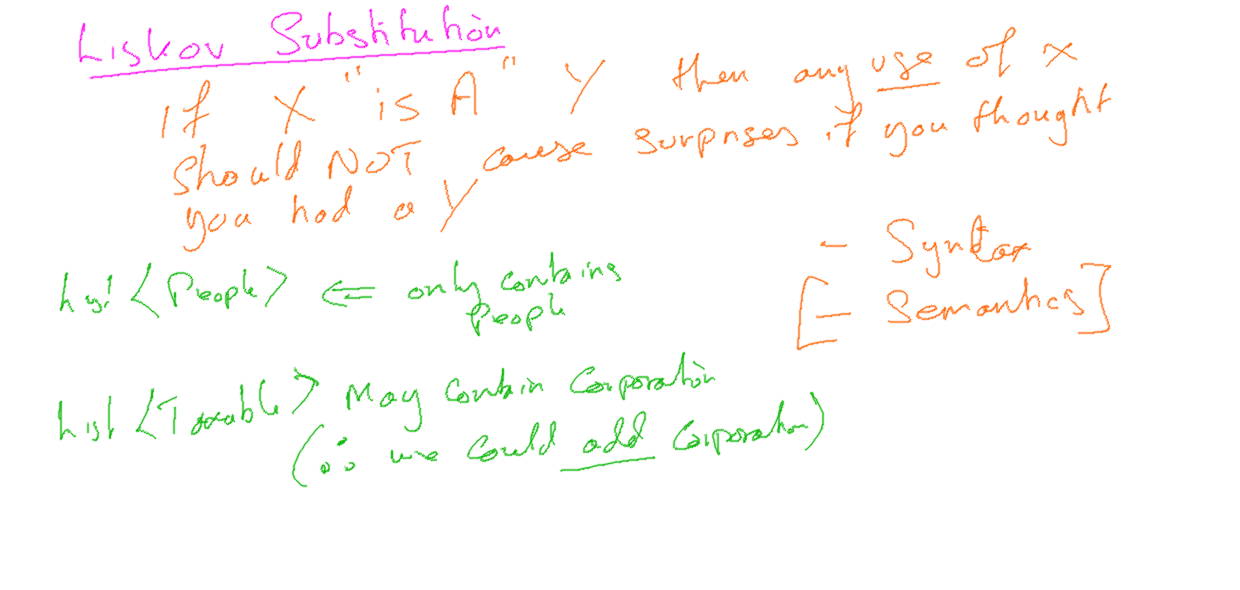 Liskov Substitution
If X "is A" Y then any use of X
should NOT cause surprises if you thought
you had a Y
- Syntax
[- Semantics]
List <People> <= only contains
people
List <Taxable> May contain Corporation
(∴ we could add Corporation)